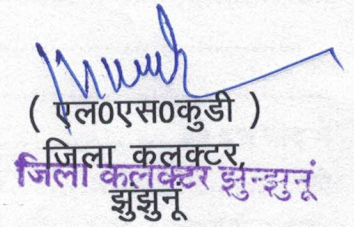 ( एल0एस0कुडी )
जिला कलक्टर,
जिला कलक्टर झुन्झुनूं
झुंझुनूं